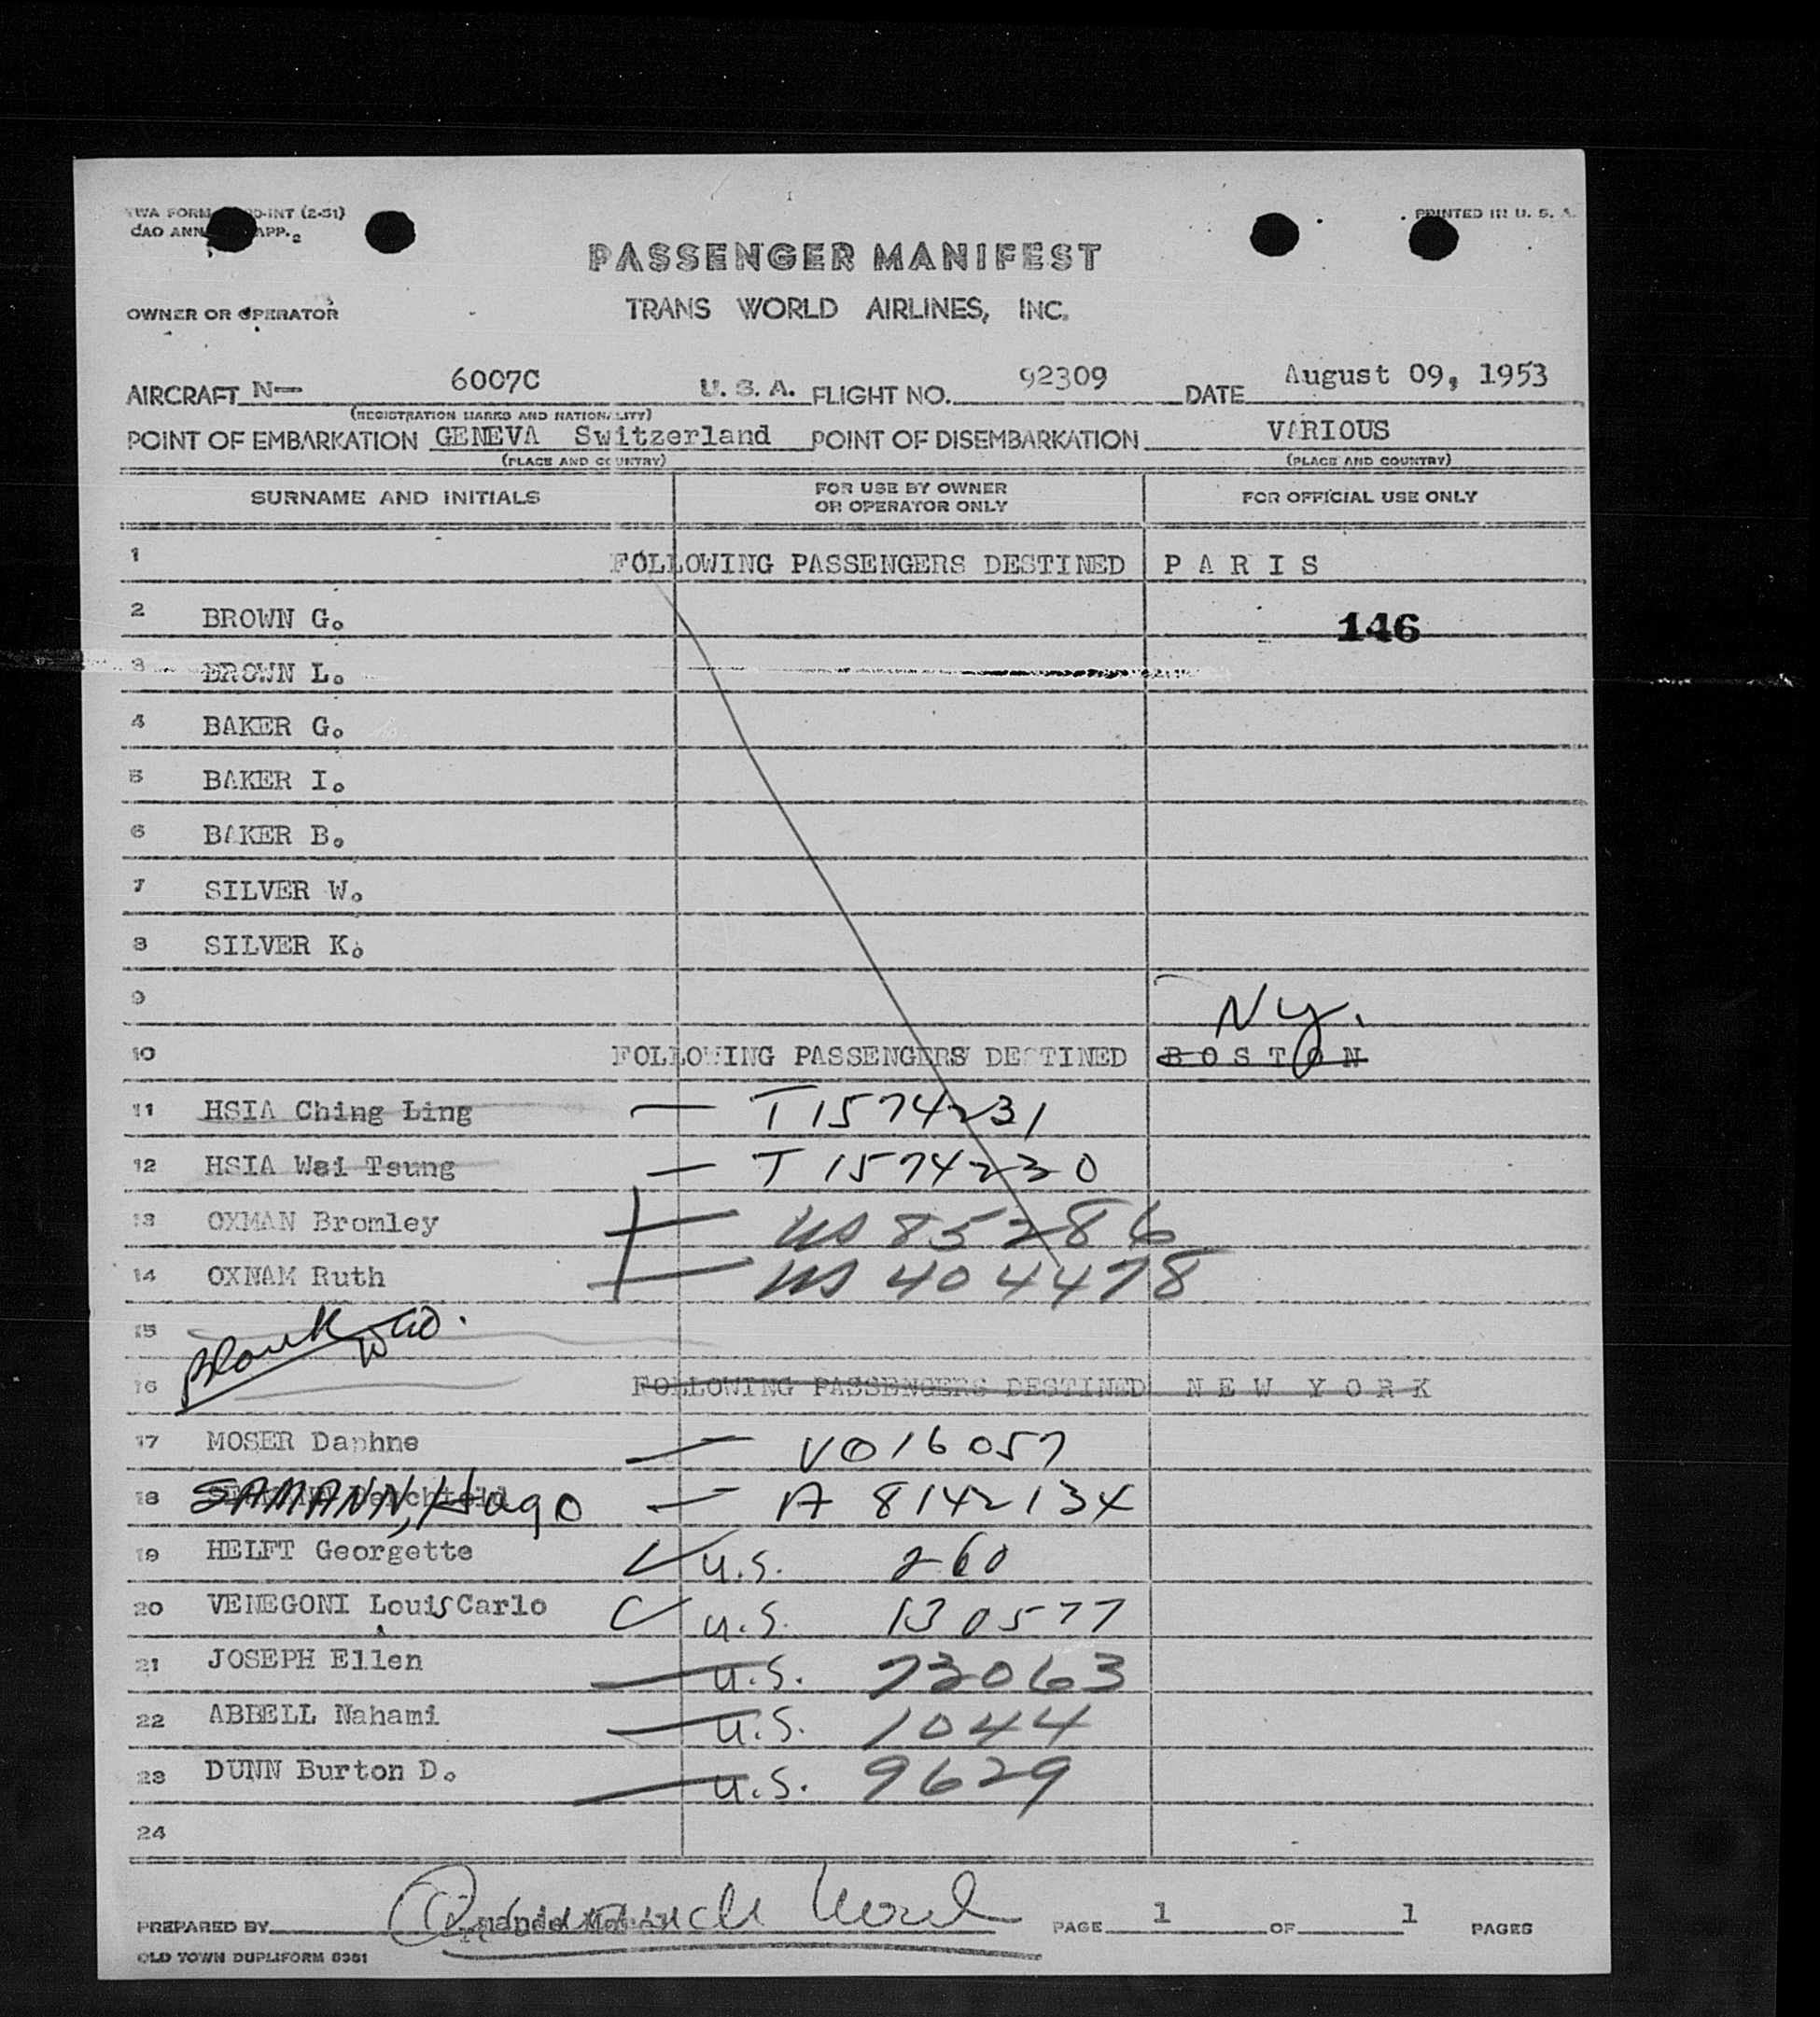 TWA FORM O-INT (2-51)
PRINTED IN U. S. A.
CAO ANN APP. 2
PASSENGER MANIFEST
OWNER OR OPERATOR
TRANS WORLD AIRLINES, INC.
AIRCRAFT N— 6007C U. S. A. FLIGHT NO. 92309 DATE August 09, 1953
(REGISTRATION MARKS AND NATIONALITY)
POINT OF EMBARKATION GENEVA Switzerland POINT OF DISEMBARKATION VARIOUS
(PLACE AND COUNTRY) (PLACE AND COUNTRY)
SURNAME AND INITIALS FOR USE BY OWNER OR OPERATOR ONLY FOR OFFICIAL USE ONLY
1 FOLLOWING PASSENGERS DESTINED PARIS
2 BROWN G. 146
3 BROWN L.
4 BAKER G.
5 BAKER I.
6 BAKER B.
7 SILVER W.
8 SILVER K.
9 NY.
10 FOLLOWING PASSENGERS DESTINED BOSTON
11 HSIA Ching Ling — T1574231
12 HSIA Wai Tsung — T1574230
13 OXMAN Bromley — US 85286
14 OXNAM Ruth — US 404478
15 Blank
16 FOLLOWING PASSENGERS DESTINED NEW YORK
17 MOSER Daphne — V016057
18 SAMANN, Hugo — A 8142134
19 HELFT Georgette U.S. 260
20 VENEGONI Louis Carlo U.S. 130577
21 JOSEPH Ellen — U.S. 73063
22 ABBELL Nahami — U.S. 1044
23 DUNN Burton D. — U.S. 9629
24
PREPARED BY PAGE 1 OF 1 PAGES
OLD TOWN DUPLIFORM 6361